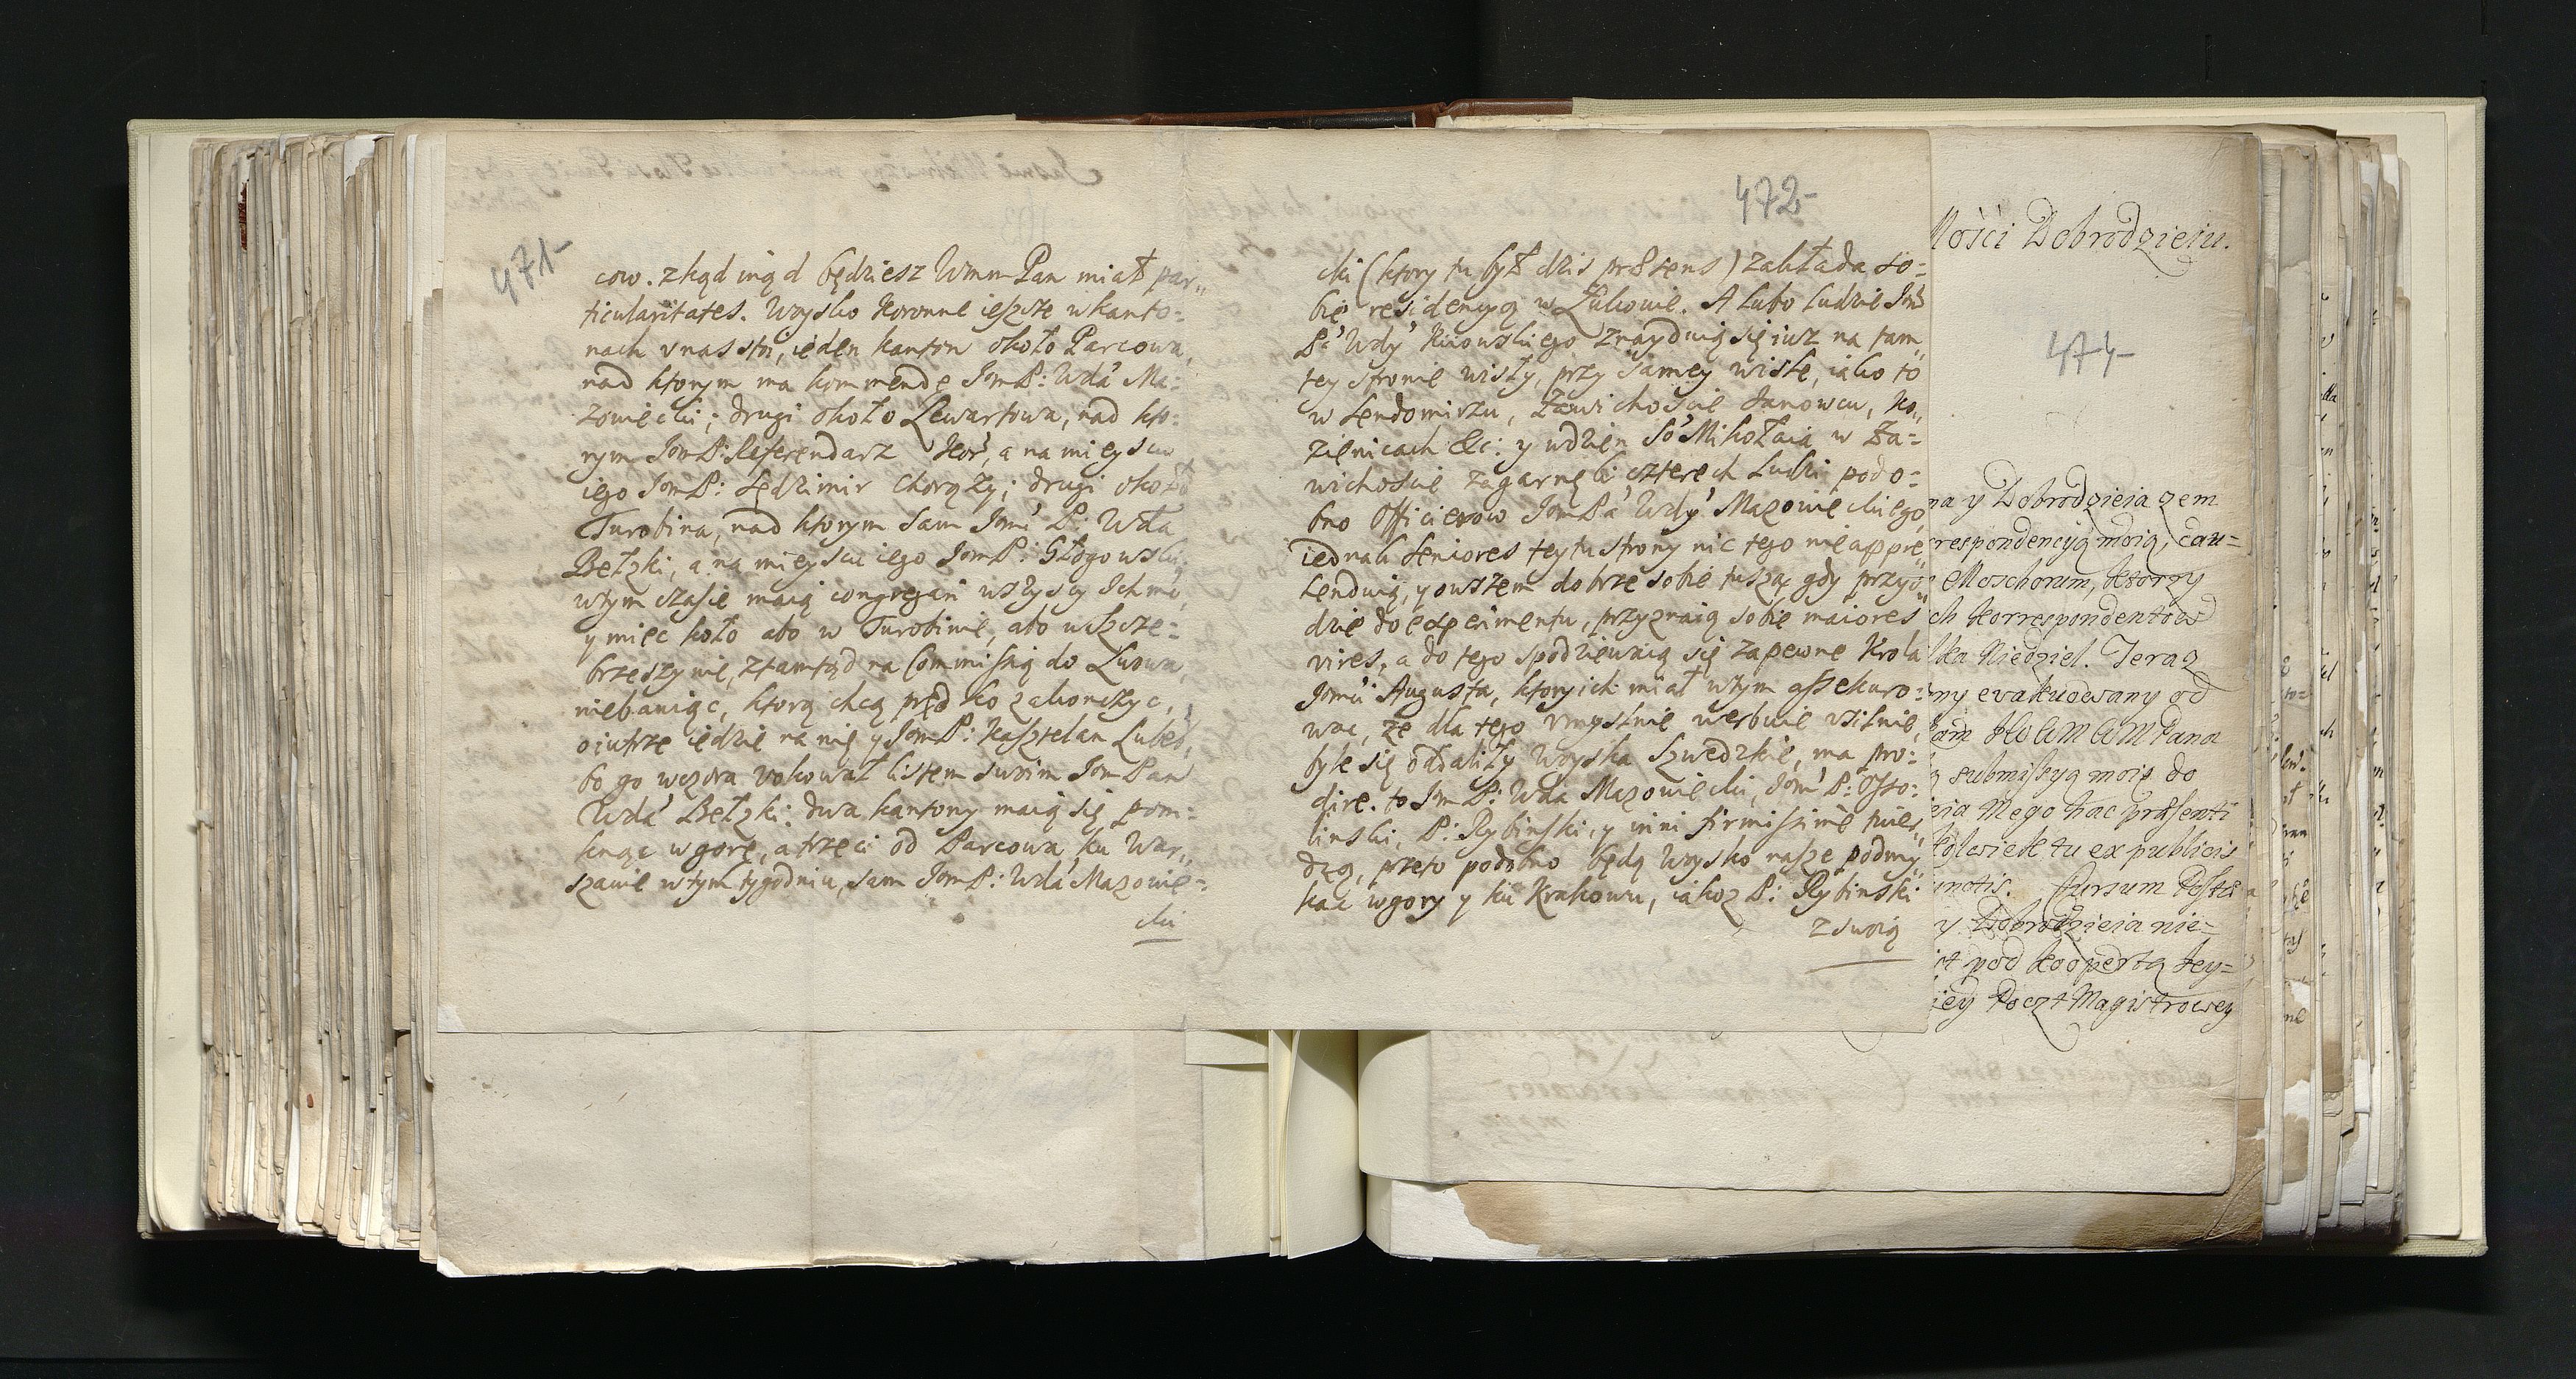 471-
cow. zkąd inąd będziesz Wmm Pan miał par„
ticularitates. Woysko Koronne ieszcze w kanto=
nach v nas stoi, ieden kanton około Parcowa,
nad ktorym ma kommendę JomP: Wda Ma=
zowiecki; drugi około Lewartowa, nad kto=
rym JomP: Referendarz Kor, a na mieyscu
iego JomP: Sędzimir Chorąży; drugi około
Turobina, nad ktorym sam Jomć P: Wda
Bełzki, a na mieyscu iego JomP: Głogowski,
w tym czasie maią congregari wszyscy Ichmć,
y miec koło abo w Turobinie, abo w Szcze=
brzeszynie, ztamtąd na Commissią do Lwowa,
niebawiąc, ktorą chcą prędko zakonczyc,
o iutrze iedzie na nię y JomP: Kasztelan Lubel,
bo go wczora vokował listem swoim Jom Pan
Wda Bełzki. dwa kantony maią się pom=
knąc w gorę, a trzeci od Parcowa ku War„
szawie w tym tygodniu, sam JomP: Wda Mazowie=
cki
472-
cki (ktory tu był dzis præsens) zakłada so=
bie residencyą w Łukowie. A lubo ludzie Jmć
Pa Wdy Kiiowskiego znayduią się iusz na tam„
tey stronie wisły, przy samey wisle, iako to
w Sendomirzu, Zawichoscie Janowcu, Ko„
zienicach &c: y w dzien So Mikołaia w Za=
wichoscie zagarnęli czterech ludzi podo=
bno Officierow JomPa Wdy Mazowieckiego,
iednak Seniores tey tu strony nic tego nie appre„
henduią, y owszem dobrze sobie tuszą, gdy przyi„
dzie do experimentu, przyznaią sobie maiores
vires, a do tego spodziewaią się zapewne Krola
Jomći Augusta, ktory ich miał w tym assekuro=
wac, że dla tego vmyslnie werbuie vsilnie,
byle się oddaliły Woyska Szwedzkie, ma pro=
dire. to Jm P: Wda Mazowiecki, Jomć P: Osso=
linski, P: Rybinski, y inni firmissimè twier„
dzą, przeto podobno będą Woysko nasze podmy„
kac w gory y ku Krakowu, iakoz P: Rybinski
z swoią
Mości Dobrodzieiu.
474-
na y Dobrodzieia zem
rrespondencyą moią, cau=
Moschorum, ktorzy
ch Korrespondentow
lka Niedziel. Teraz
ny evakuowany od
submissyą moię do
eia Mego hac præsenti
kolwiek tu ex publicis
Cursum Poszt
y Dobrodzieia nie=
pod kopertą Jey=
iey Poczt Magistrowey